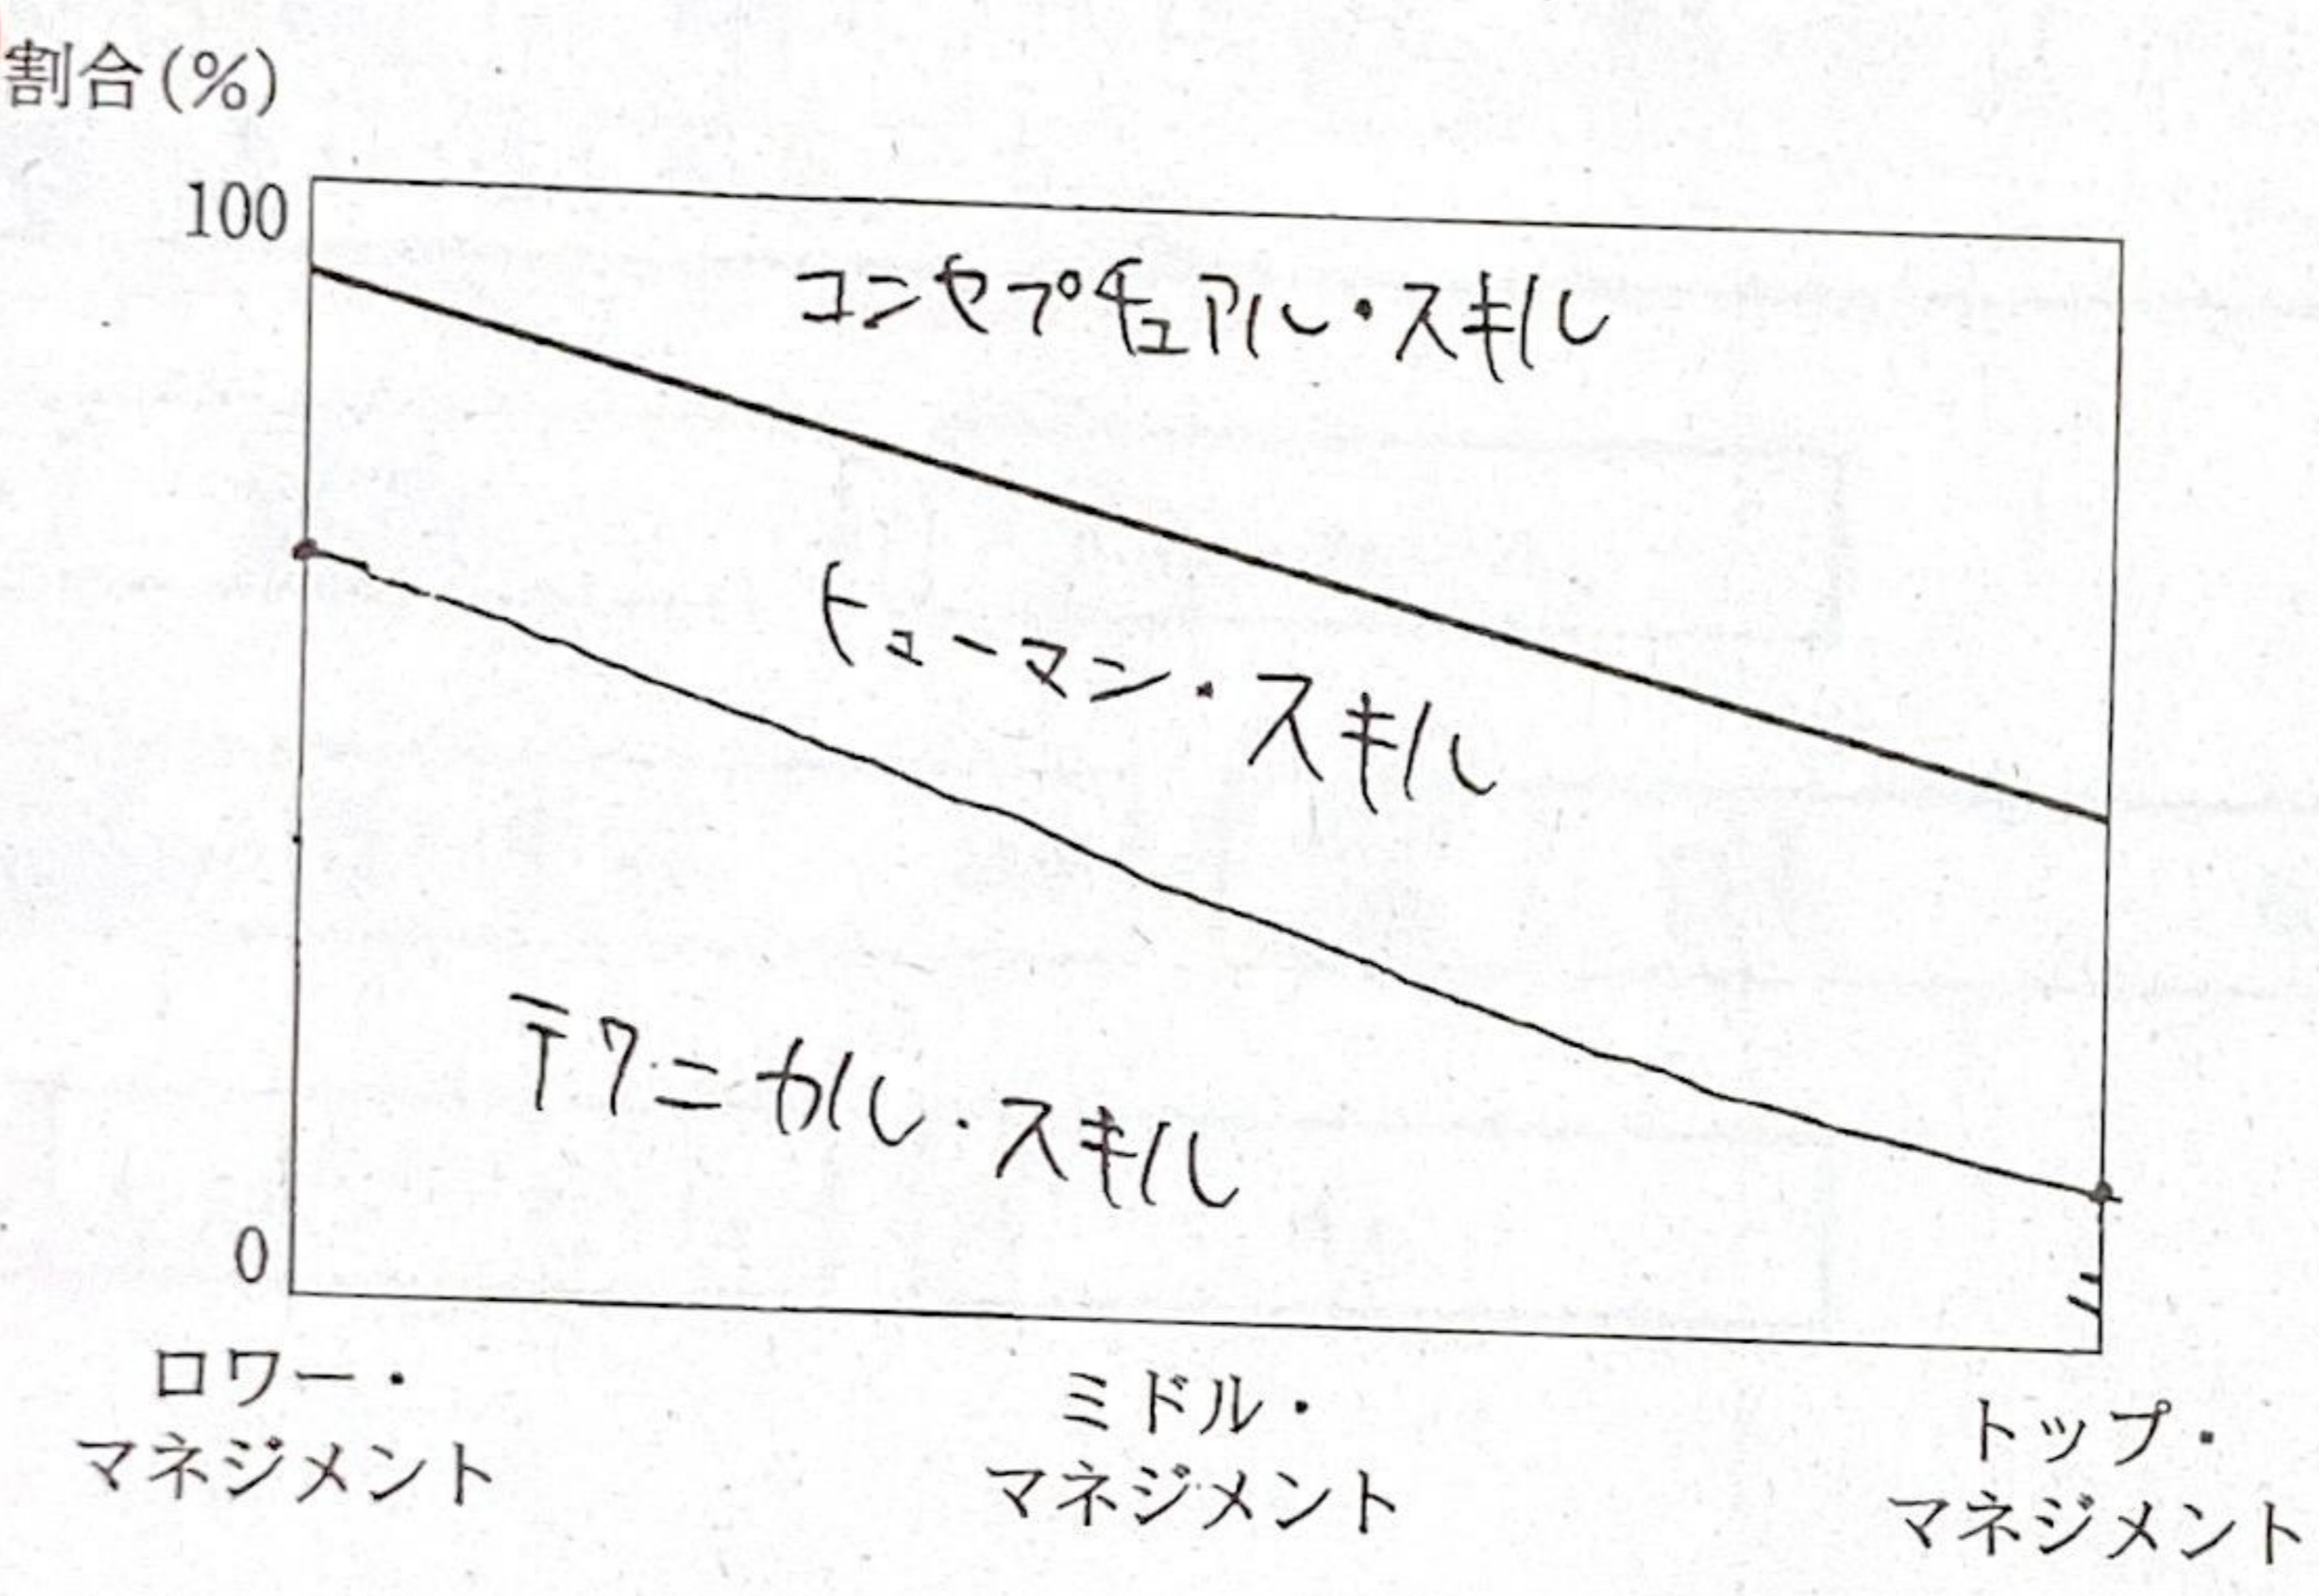 割合(%)
100
コンセプチュアル・スキル
ヒューマン・スキル
テクニカル・スキル
0
ロワー・
マネジメント
ミドル・
マネジメント
トップ・
マネジメント